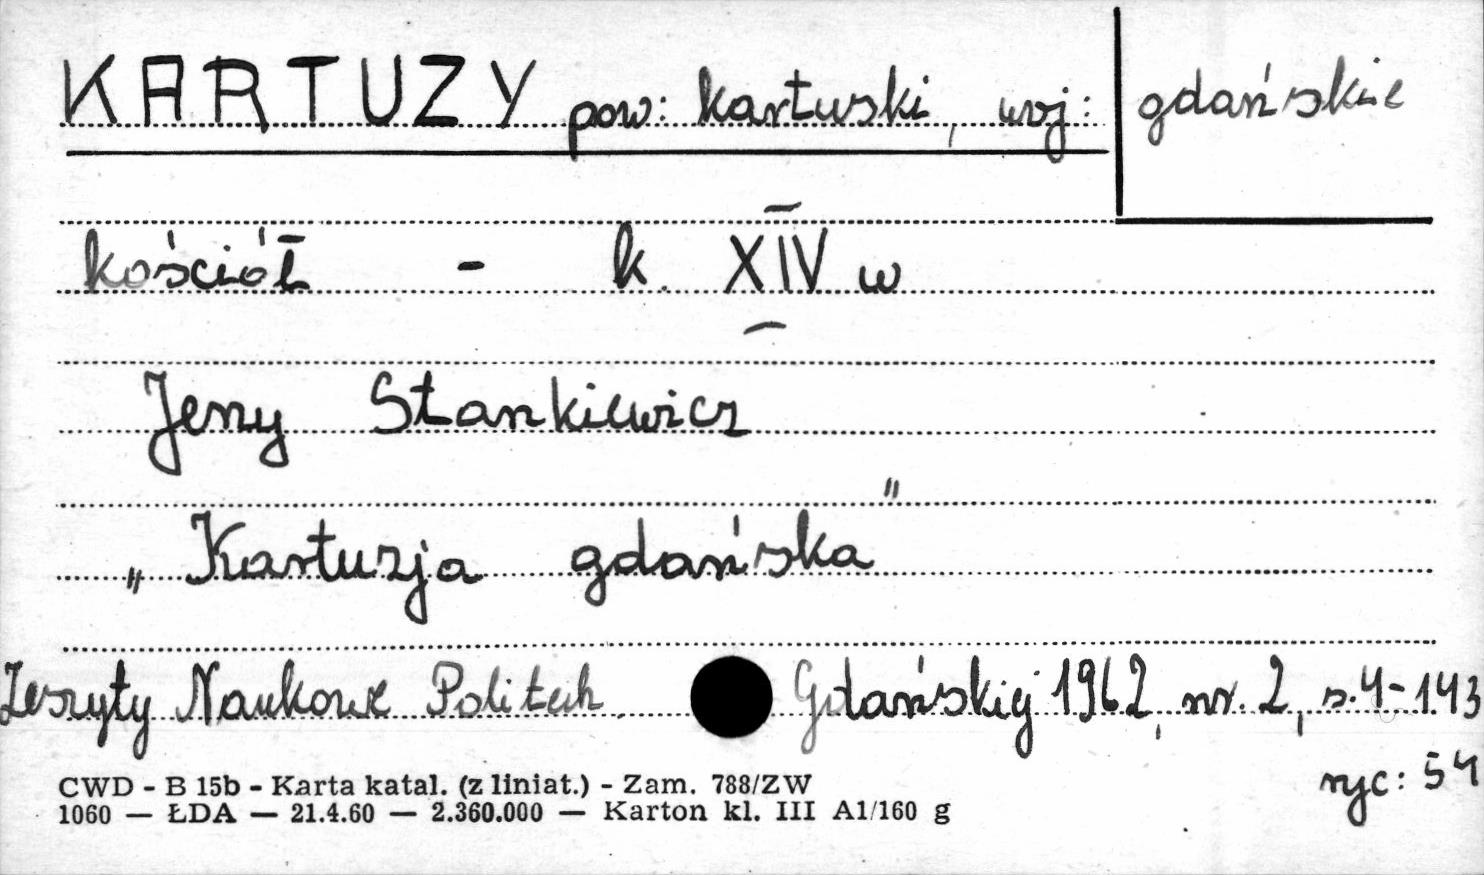 KARTUZY pow: kartuski, woj: gdańskie
kościół - k. XIV w
Jerzy Stankiewicz
„Kartuzja gdańska"
Zeszyty Naukowe Politech. Gdańskiej 1962, nr. 2, s. 4-143
ryc: 54
CWD - B 15b - Karta katal. (z liniat.) - Zam. 788/ZW
1060 — ŁDA — 21.4.60 — 2.360.000 — Karton kl. III A1/160 g